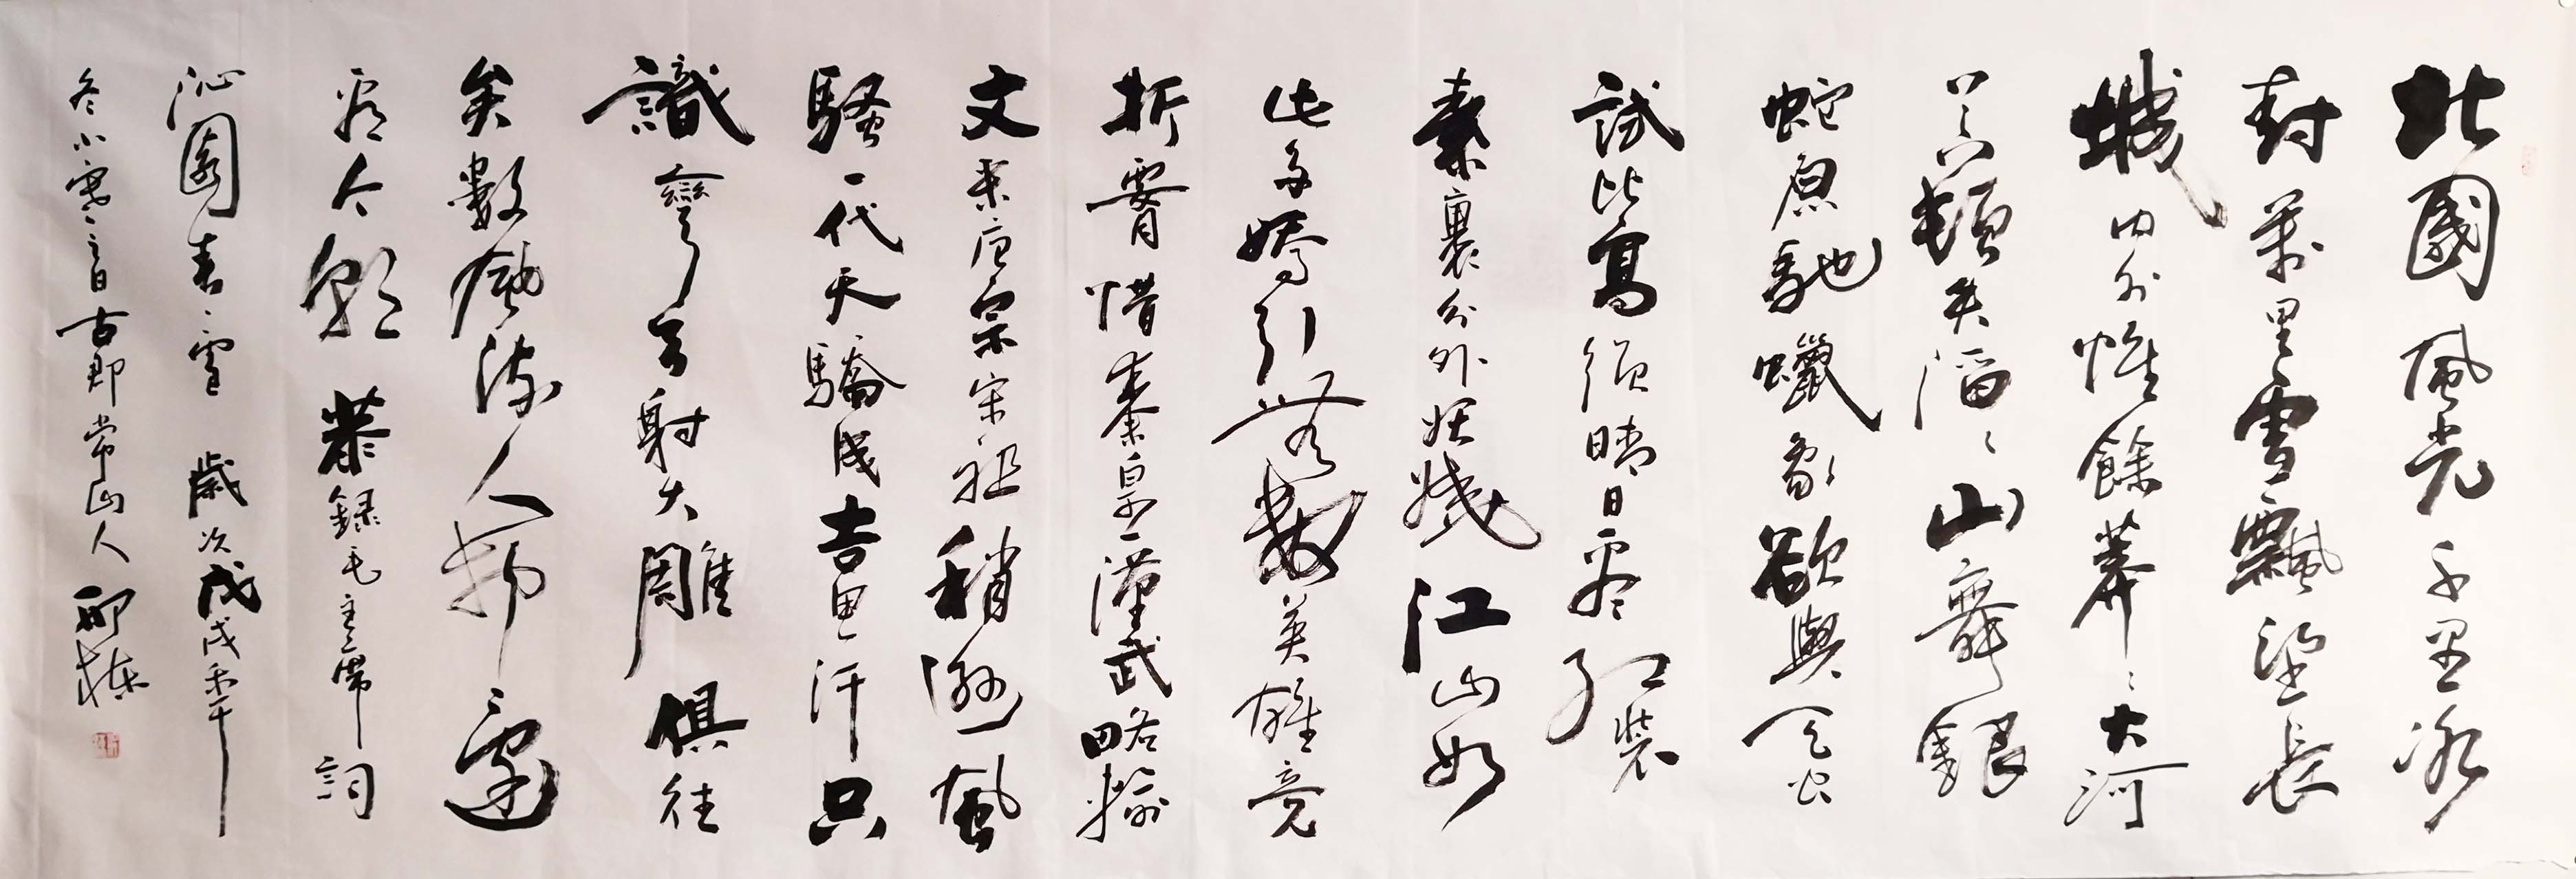 北國風光千里冰
封萬里雪飄望長
城內外惟餘莽〻大河
上下頓失滔〻山舞銀
蛇原馳蠟象欲與天公
試比高須晴日看紅裝
素裹分外妖嬈江山如
此多嬌引無數英雄竞
折腰惜秦皇漢武略輸
文采唐宗宋祖稍遜風
騷一代天驕成吉思汗只
識彎弓射大雕俱往
矣數風流人物還
看今朝 恭錄毛主席詞
沁園春·雪 歲次戊戌年
冬小雪之日古郡常山人